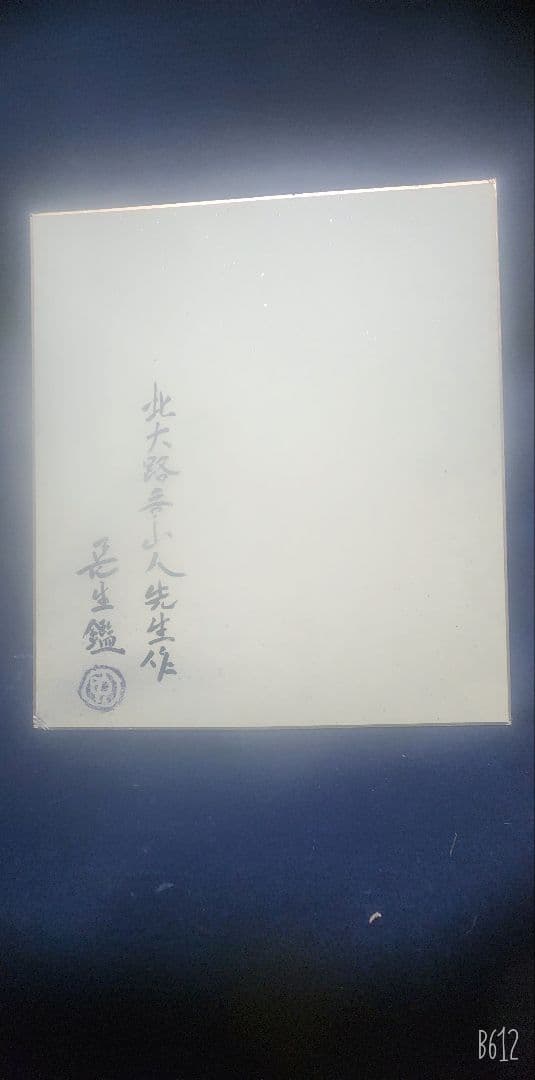 北大路魯山人先生作
生鑑
B612